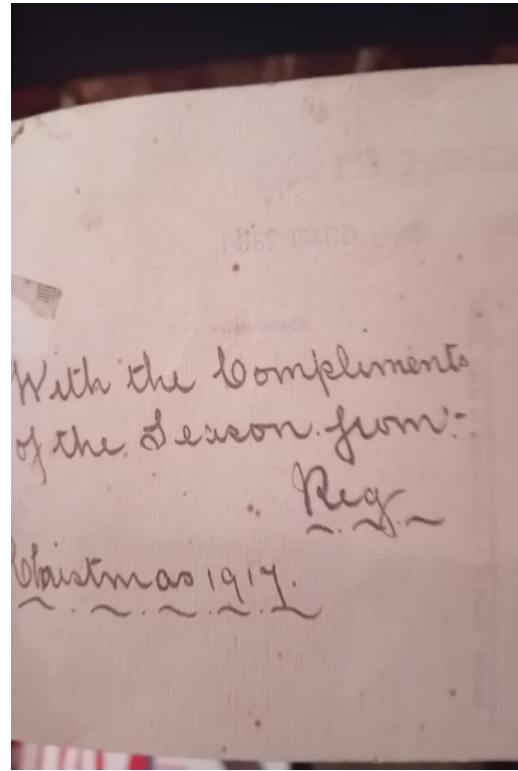 POST CARD
With the Compliments
of the Season from:-
Reg
Christmas 1917.